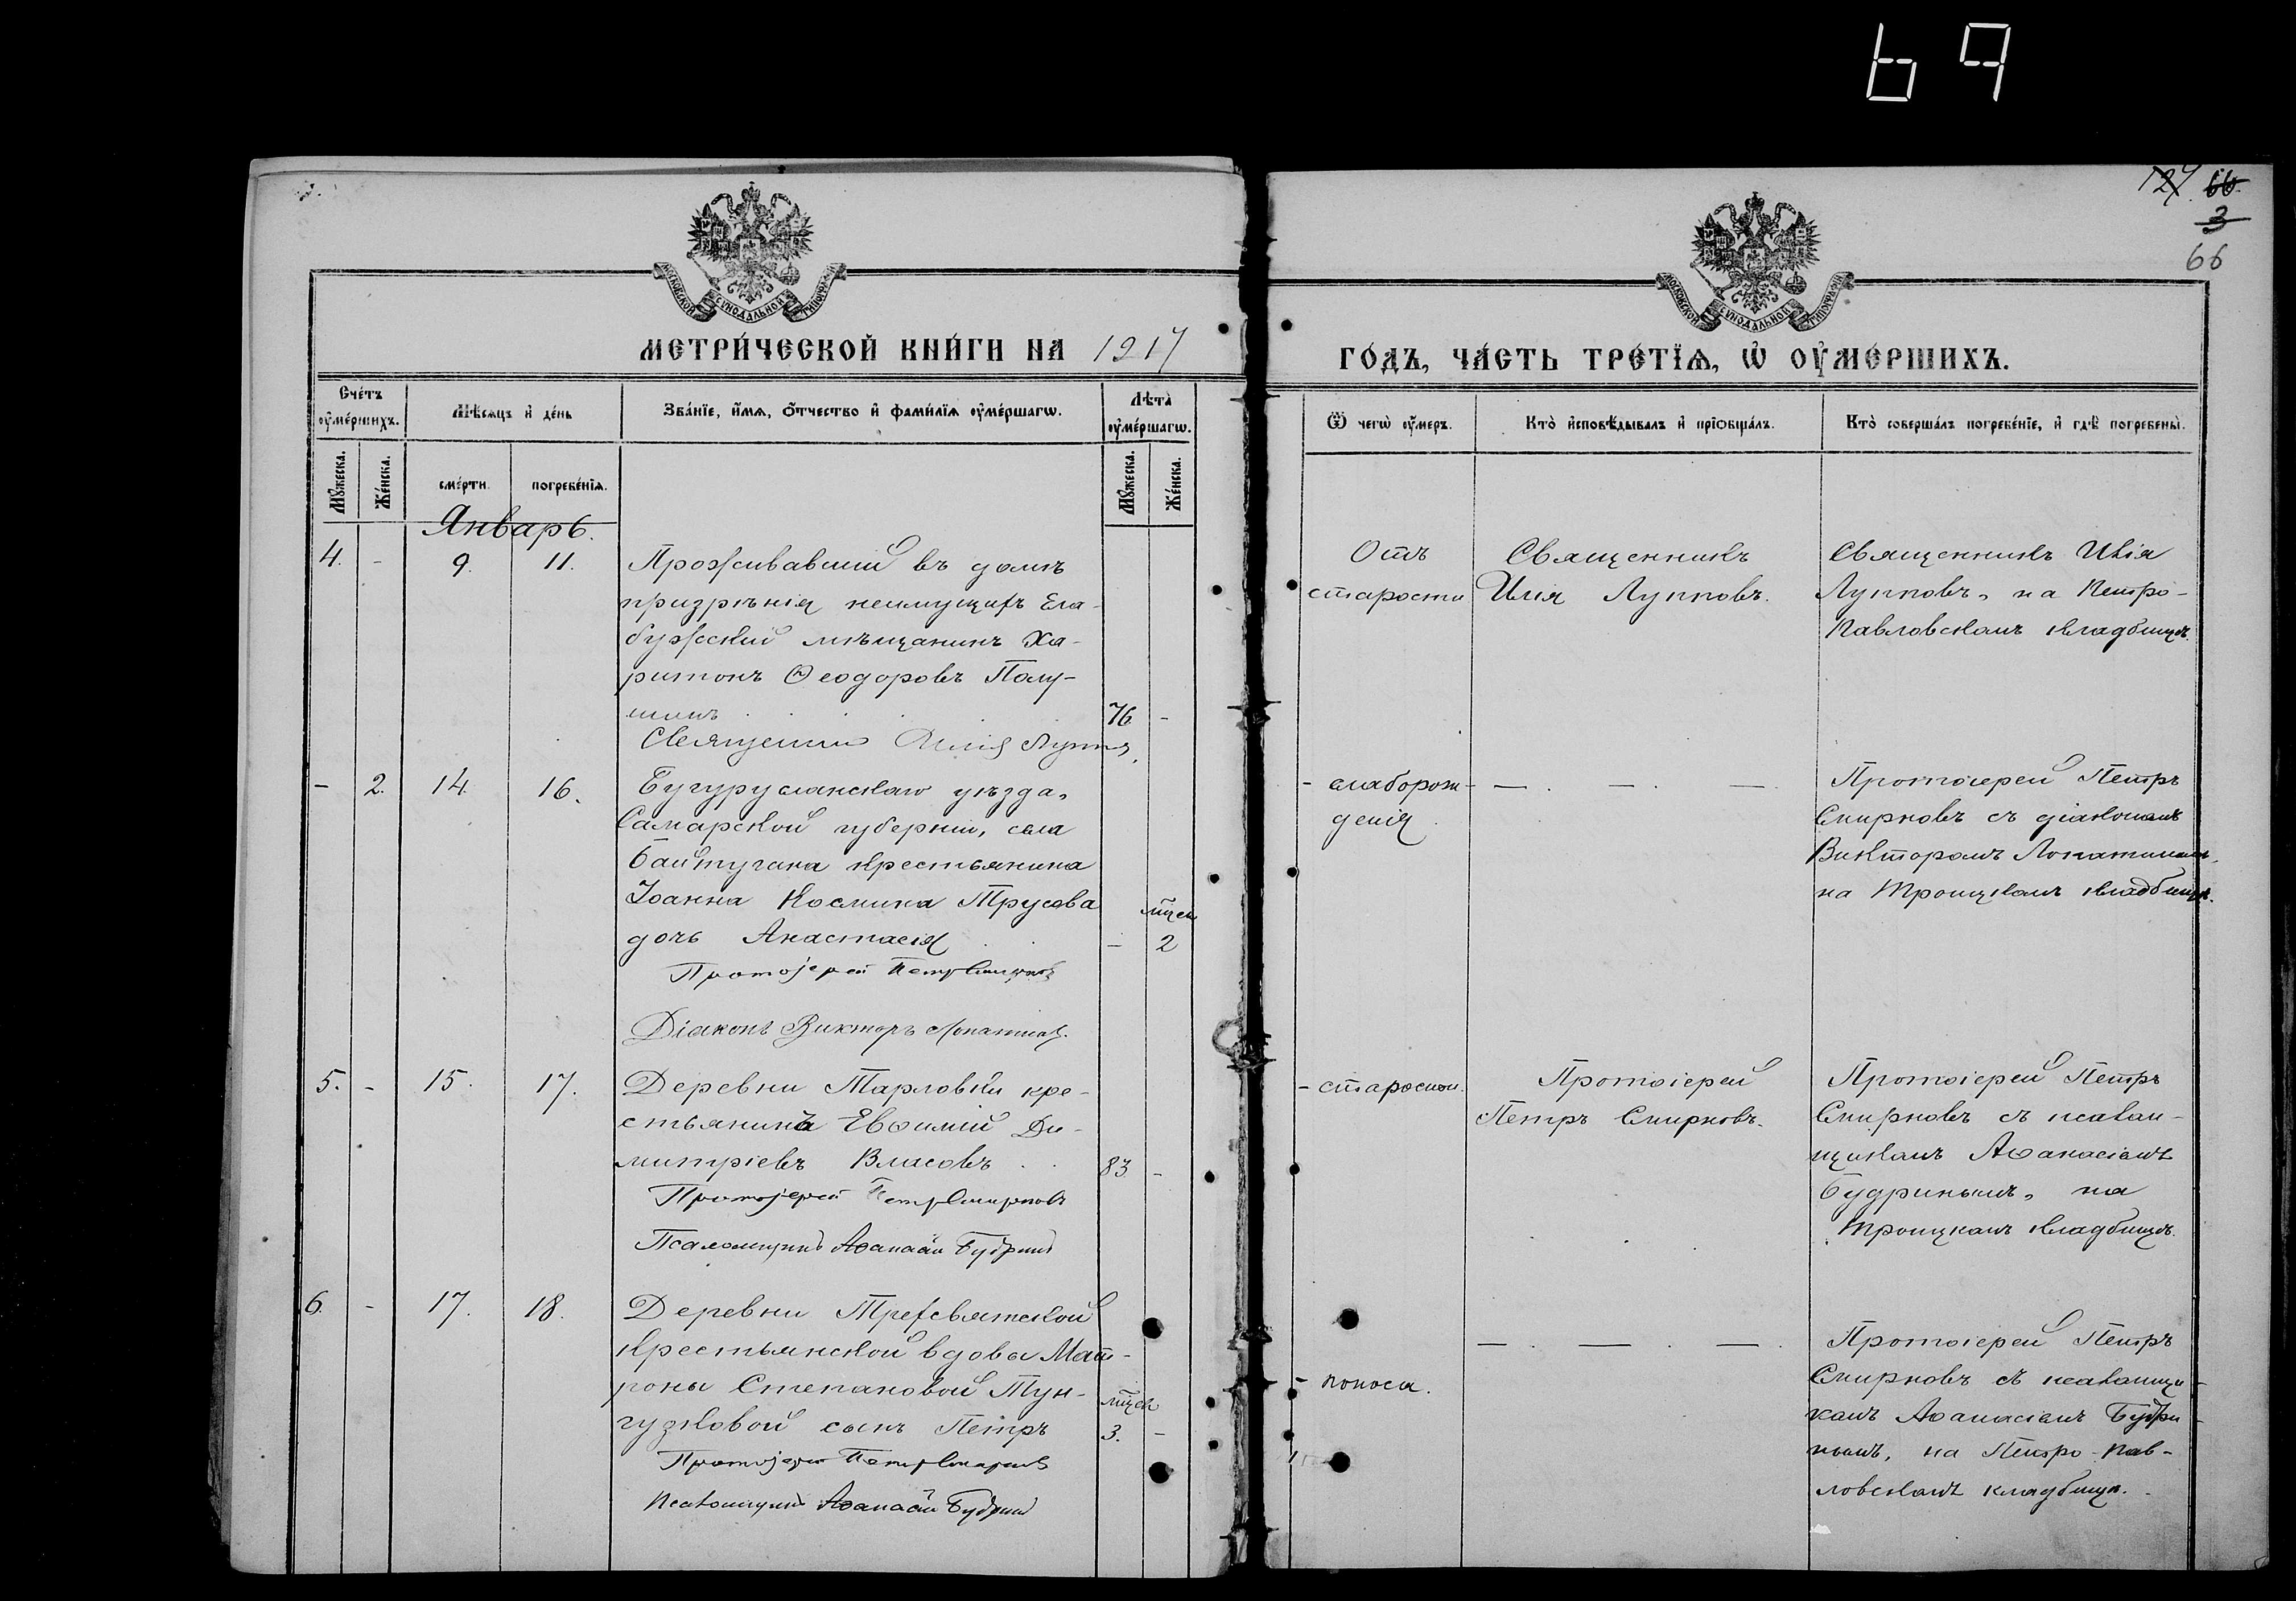 69
127. 66.
3
66
МОСКОВСКОЙ СѴНОДАЛЬНОЙ ТИПОГРАФІИ
МОСКОВСКОЙ СѴНОДАЛЬНОЙ ТИПОГРАФІИ
МЕТРИ́ЧЕСКОЙ КНИ́ГИ НА 1917
ГО́ДЪ, ЧА́СТЬ ТРЕ́ТЇѦ, Ѡ҆ ОУ҆МЕ́РШИХЪ.
Сче́тъ оу҆ме́ршихъ.
Мѣ́сяцъ и҆ де́нь
Зва́нїе, и҆́мѧ, о҆́тчество и҆ фами́лїѧ оу҆ме́ршагѡ.
Лѣта̀ оу҆ме́ршагѡ.
Ѿ чегѡ̀ оу҆́меръ.
Кто̀ и҆сповѣ́дывалъ и҆ прїѡбща́лъ.
Кто̀ соверша́лъ погребе́нїе, и҆ гдѣ̀ погребены̀.
Мꙋ́жеска.
Же́нска.
сме́рти.
погребе́нїѧ.
Мꙋ́жеска.
Же́нска.
Январь.
4. - 9. 11. Проживавшій въ домѣ
призрѣнія неимущихъ Ела-
бужскій мѣщанинъ Ха-
ритонъ Ѳеодоровъ Полу-
шинъ . . . 76. -
Священникъ Илія Лупповъ
Отъ
старости
Священникъ
Илія Лупповъ.
Священникъ Илія
Лупповъ, на Петро-
Павловскомъ кладбищѣ.
- 2. 14. 16. Бугурусланскаго уѣзда,
Самарской губерніи, села
Байтугана крестьянина
Іоанна Космина Трусова
мѣсяц
дочь Анастасія . . - 2
Протоіерей Петръ Смирновъ
Діаконъ Викторъ Лопатинъ.
- слаборож-
денія.
— . — . — .
Протоіерей Петръ
Смирновъ съ діакономъ
Викторомъ Лопатинымъ,
на Троицкомъ кладбищѣ.
5. - 15. 17. Деревни Тарловки кре-
стьянинъ Евѳимій Ди-
митріевъ Власовъ . . 83. -
Протоіерей Петръ Смирновъ
Псаломщикъ Аѳанасій Будринъ
- старости.
Протоіерей
Петръ Смирновъ.
Протоіерей Петръ
Смирновъ съ псалом-
щикомъ Аѳанасіемъ
Будринымъ, на
Троицкомъ кладбищѣ.
6. - 17. 18. Деревни Трехсвятской
крестьянской вдовы Мат-
роны Степановой Тун-
мѣсяц
гузковой сынъ Петръ 3. -
Протоіерей Петръ Смирновъ
Псаломщикъ Аѳанасій Будринъ
- поноса.
— . — . — .
Протоіерей Петръ
Смирновъ съ псаломщи-
комъ Аѳанасіемъ Будри-
нымъ, на Петро-Пав-
ловскомъ кладбищѣ.